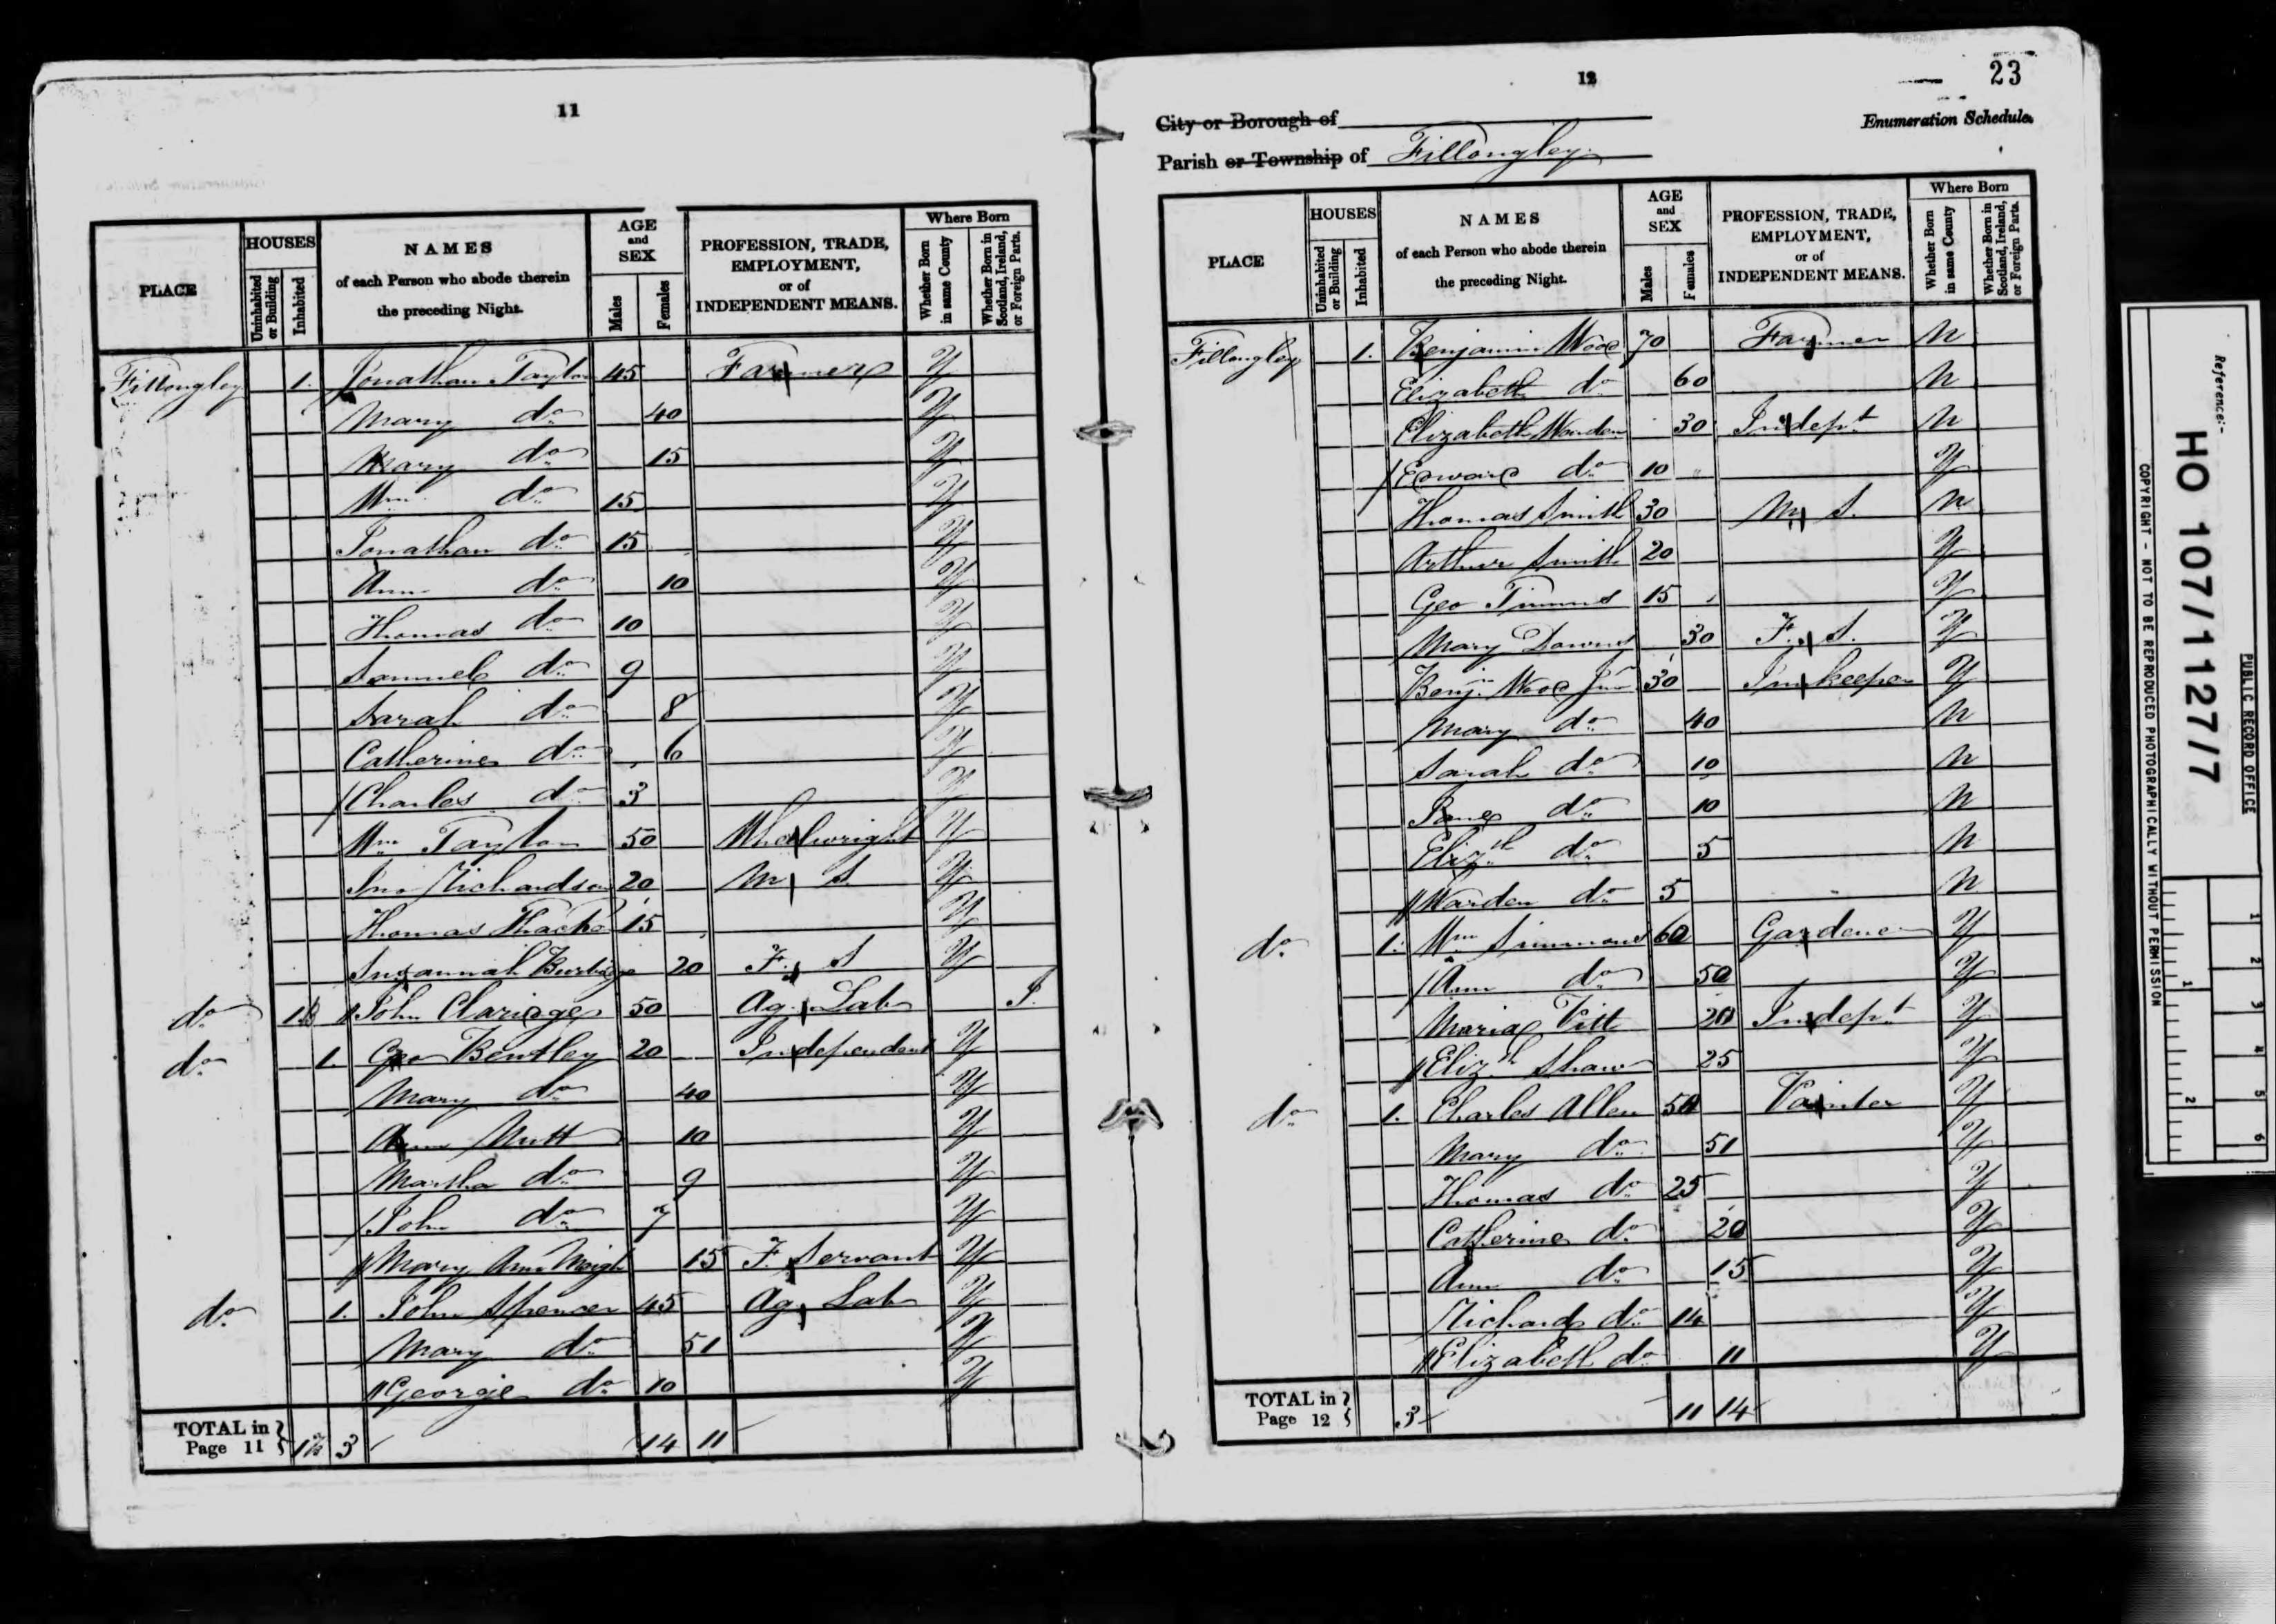 11
PLACE
HOUSES
Uninhabited or Building
Inhabited
NAMES
of each Person who abode therein
the preceding Night.
AGE
and
SEX
Males
Females
PROFESSION, TRADE,
EMPLOYMENT,
or of
INDEPENDENT MEANS.
Where Born
Whether Born in same County
Whether Born in Scotland, Ireland, or Foreign Parts.
Fillongley 1. Jonathan Taylor 45 Farmer Y
Mary do 40 Y
Mary do 15 Y
Wm do 15 Y
Jonathan do 15 Y
Ann do 10 Y
Thomas do 10 Y
Samuel do 9 Y
Sarah do 8 Y
Catherine do 6 Y
Charles do 3 Y
Wm Taylor 50 Whelwright Y
Jno Richardson 20 M S. Y
Thomas 15 Y
Susannah 20 F. S Y
do John Claridge 50 Ag. Lab I.
do 1. Geo Bentley 20 Independent Y
Mary do 40 Y
Ann Nutt 10 Y
Martha do 9 Y
John do 7 Y
Mary Ann 15 F. Servant Y
do 1. John Spencer 45 Ag. Lab Y
Mary do 51 Y
George do 10 Y
TOTAL in
Page 11 3 14 11
12
23
City or Borough of
Enumeration Schedule.
Parish or Township of Fillongley
PLACE
HOUSES
Uninhabited or Building
Inhabited
NAMES
of each Person who abode therein
the preceding Night.
AGE
and
SEX
Males
Females
PROFESSION, TRADE,
EMPLOYMENT,
or of
INDEPENDENT MEANS.
Where Born
Whether Born in same County
Whether Born in Scotland, Ireland, or Foreign Parts.
Fillongley 1. Benjamin Wood 70 Farmer N
Elizabeth do 60 N
Elizabeth Warden 30 Indept N
Edward do 10 Y
Thomas Smith 30 M S. N
Arthur Smith 20 Y
Geo Timms 15 Y
Mary Downs 30 F. S. Y
Benj. Wood Jun 30 Innkeeper Y
Mary do 40 N
Sarah do 10 N
Jane do 10 N
Elizth do 5 N
Warden do 5 N
do 1. Wm Simmons 60 Gardener Y
Ann do 50 Y
Maria Pitt 20 Indept Y
Elizth Shaw 25 Y
do 1. Charles Allen 50 Painter Y
Mary do 51 Y
Thomas do 25 Y
Catherine do 20 Y
Ann do 15 Y
Richard do 14 Y
Elizabeth do 11 Y
TOTAL in
Page 12 3 11 14
Reference:-
HO 107/1127/7
PUBLIC RECORD OFFICE
COPYRIGHT - NOT TO BE REPRODUCED PHOTOGRAPHICALLY WITHOUT PERMISSION
1
2
3
4
5
6
1
2